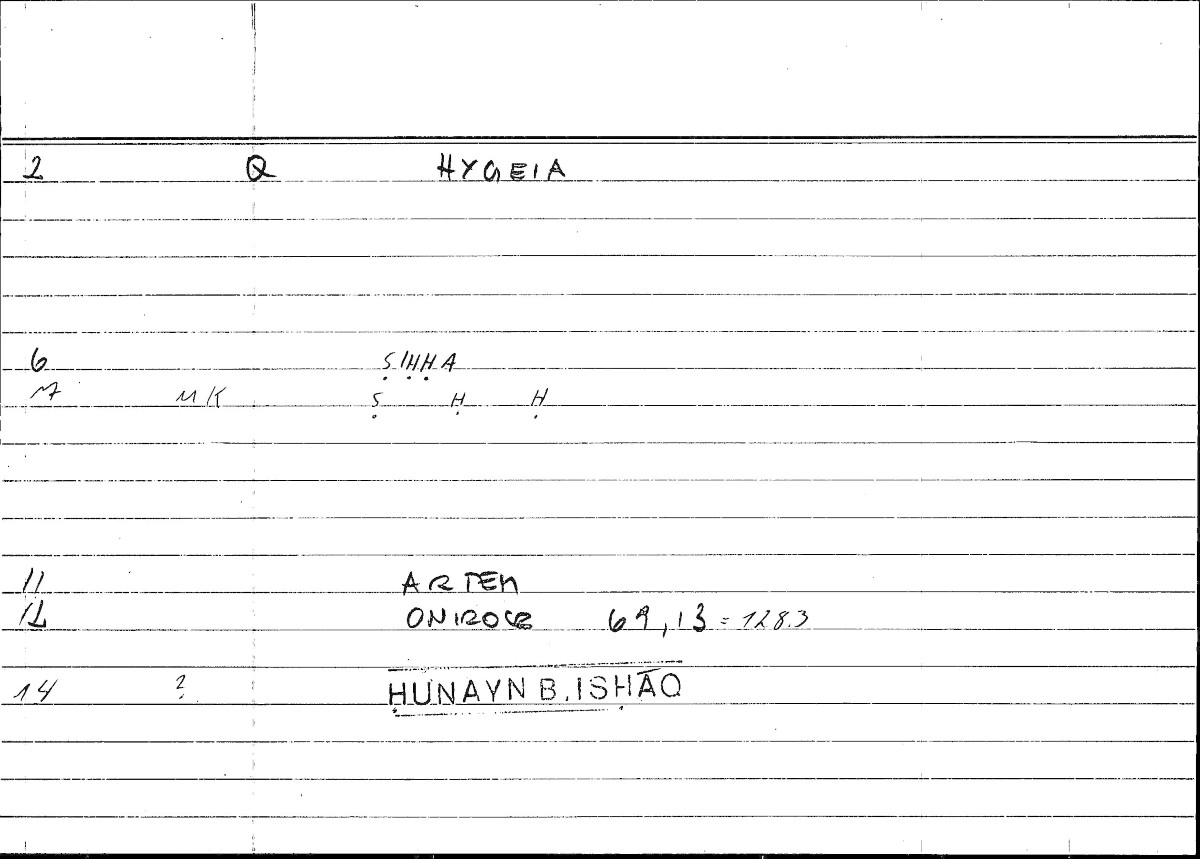 2 Q HYGEIA
6 ṢIḤḤA
7 MK Ṣ Ḥ Ḥ
11 ARTEM
12 ONIROCR 69,13 = 128.3
14 ? ḤUNAYN B. ISḤĀQ